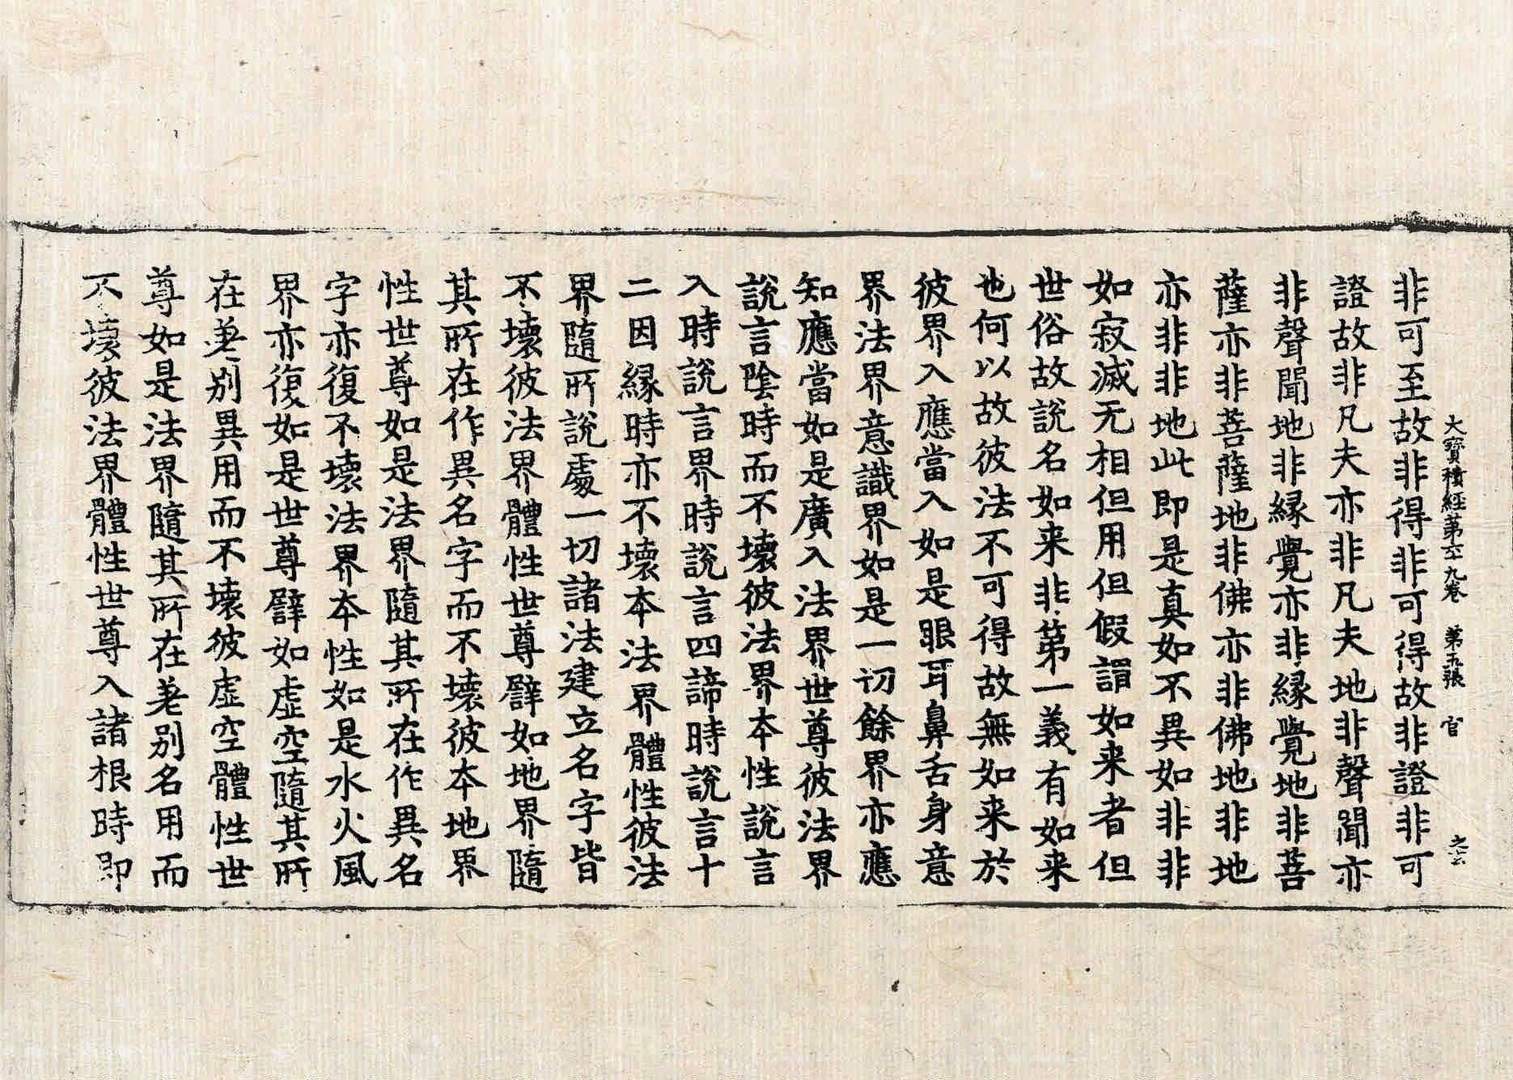 大寶積經第六十九卷 第五張 官
非可至故非得非可得故非證非可
證故非凡夫亦非凡夫地非聲聞亦
非聲聞地非緣覺亦非緣覺地非菩
薩亦非菩薩地非佛亦非佛地非地
亦非非地此即是真如不異如非非
如寂滅无相但用但假謂如来者但
世俗故說名如来非第一義有如来
也何以故彼法不可得故無如来於
彼界入應當入如是眼耳鼻舌身意
界法界意識界如是一切餘界亦應
知應當如是廣入法界世尊彼法界
說言陰時而不壞彼法界本性說言
入時說言界時說言四諦時說言十
二因緣時亦不壞本法界體性彼法
界隨所說處一切諸法建立名字皆
不壞彼法界體性世尊譬如地界隨
其所在作異名字而不壞彼本地界
性世尊如是法界隨其所在作異名
字亦復不壞法界本性如是水火風
界亦復如是世尊譬如虛空隨其所
在差別異用而不壞彼虛空體性世
尊如是法界隨其所在差別名用而
不壞彼法界體性世尊入諸根時即